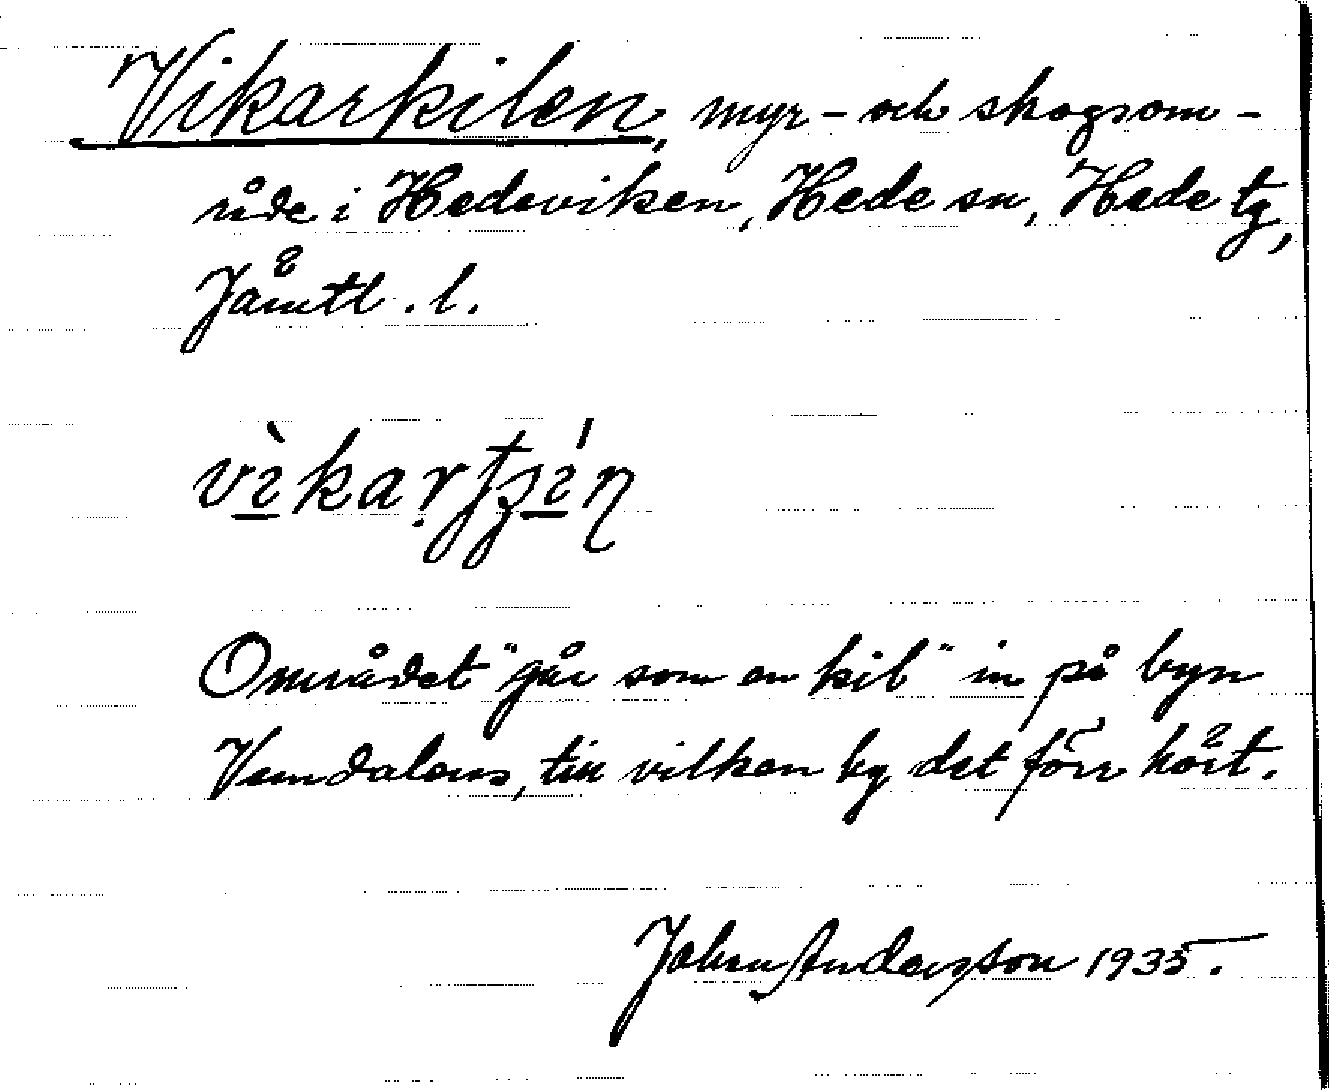 Vikarkilen, myr- och skogsom-
råde i Hedeviken, Hede sn, Hede tg,
Jämtl. l.
Området "går som en kil" in på byn
Vemdalens, till vilken by det förr hört.
Johan Andersson 1935.